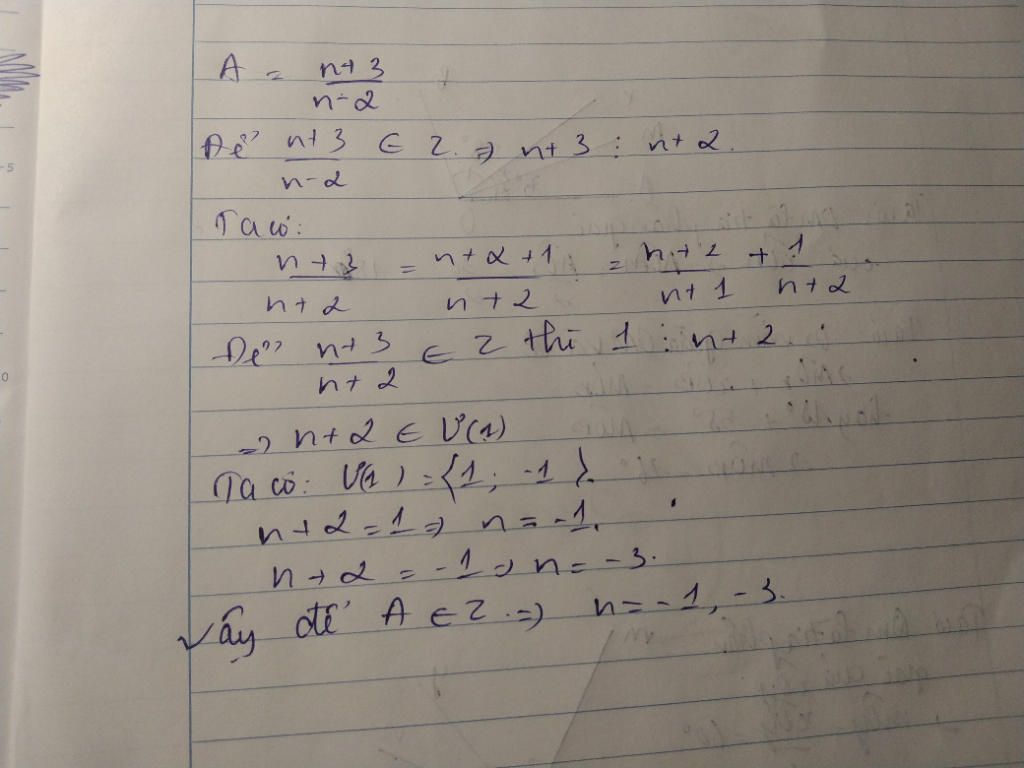 A = n+3 / n-2
Để n+3 / n-2 ∈ Z. => n+3 ⋮ n+2.
Ta có:
n+3 / n+2 = n+2+1 / n+2 = n+2 / n+1 + 1 / n+2
Để n+3 / n+2 ∈ Z thì 1 ⋮ n+2
=> n+2 ∈ Ư(1)
Ta có: Ư(1) = {1; -1}.
n+2 = 1 => n = -1.
n+2 = -1 => n = -3.
Vây để A ∈ Z. => n = -1, -3.